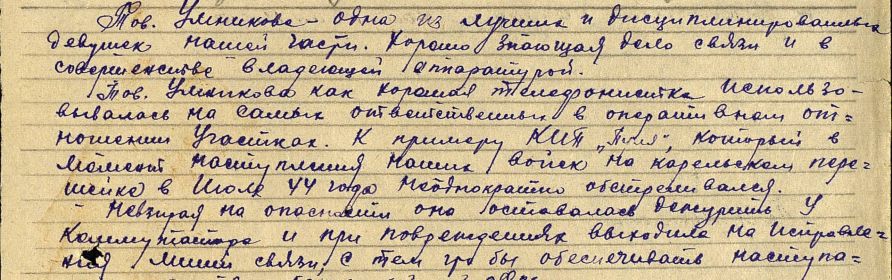 Тов. Умникова – одна из лучших и дисциплинированных
девушек нашей части. Хорошо знающая дело связи и в
совершенстве владеющей аппаратурой.
Тов. Умникова как хорошая телефонистка использо-
вывалась на самых ответственных в оперативном от-
ношении участках. К примеру КИП, который в
момент наступления наших войск на карельском пере-
шейке в Июле 44 года неоднократно обстреливался.
Невзирая на опасности она оставалась дежурить у
коммутатора и при повреждениях выходила на исправле-
ния линий связи, с тем что бы обеспечивать наступа-